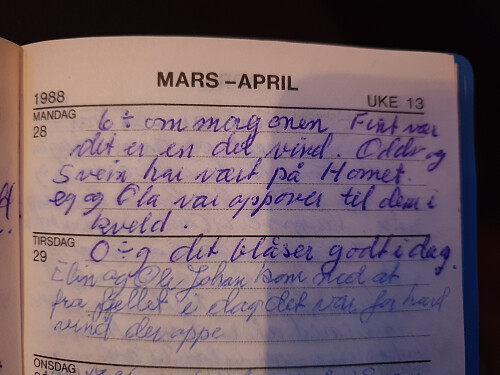 MARS – APRIL
1988 UKE 13
MANDAG
28
6 ÷ om morgonen Fint vær
det er en del vind. Oddv og
Svein har vært på Hornet.
eg og Ola var oppover til dem i
kveld.
TIRSDAG
29
0 ÷ g det blåser godt i dag.
Elin og Ole Johan kom ned at
fra fjellet i dag det var for hard
vind der oppe
ONSDAG